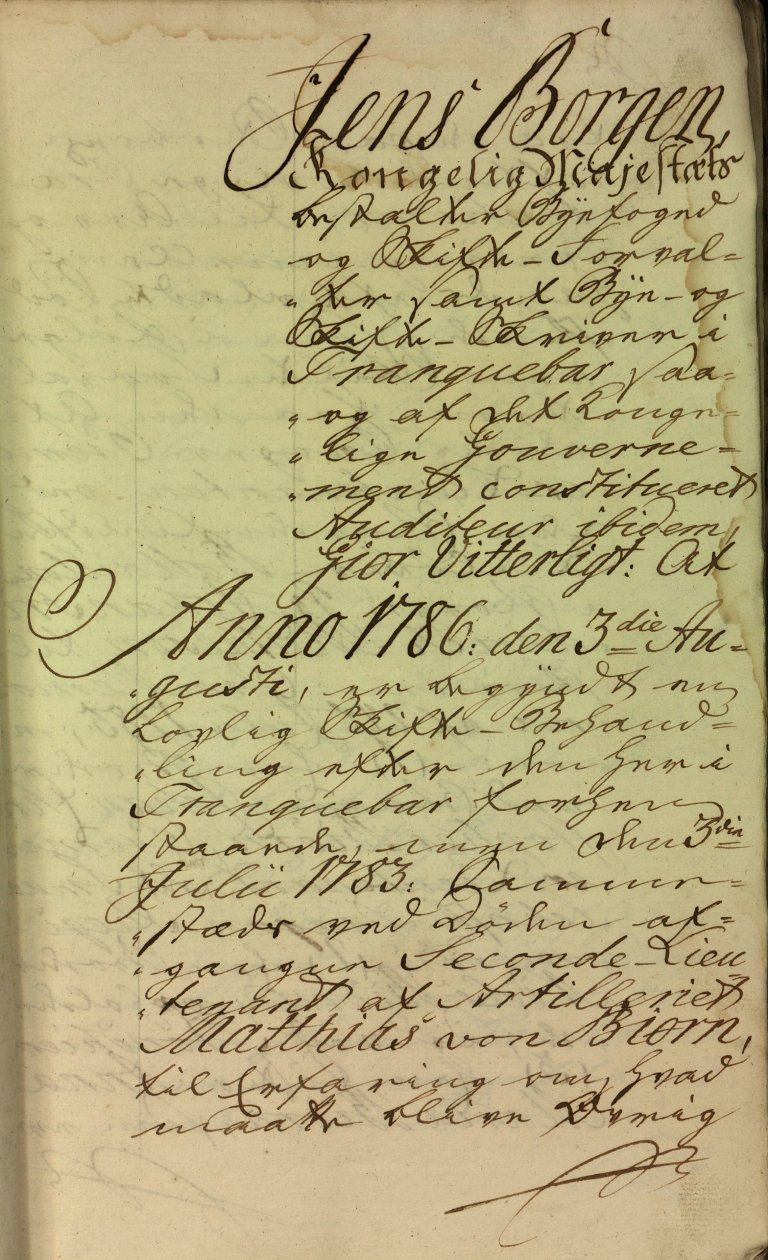 Jens Borgen,
Kongelig Majestæts
bestalter Bÿefoged
og Skifte-Forval=
„ter samt Bÿe- og
Skifte-Skriver i
Tranquebar, saa=
„og af det Konge=
„lige Gouverne=
„ment constitueret
Auditeur ibidem,
Giør Vitterligt: At
Anno 1786. den 3die Au=
„gusti, er begÿndt en
Lovlig Skifte-Behand=
„ling efter den her i
Tranquebar forhen
staaende, men den 3die
Julii 1783. Samme=
„stæds ved Døden af=
„gangne Seconde-Lieu=
„tenant af Artilleriet
Matthias von Biørn,
til Erfaring om, hvad
maatte blive Øvrig